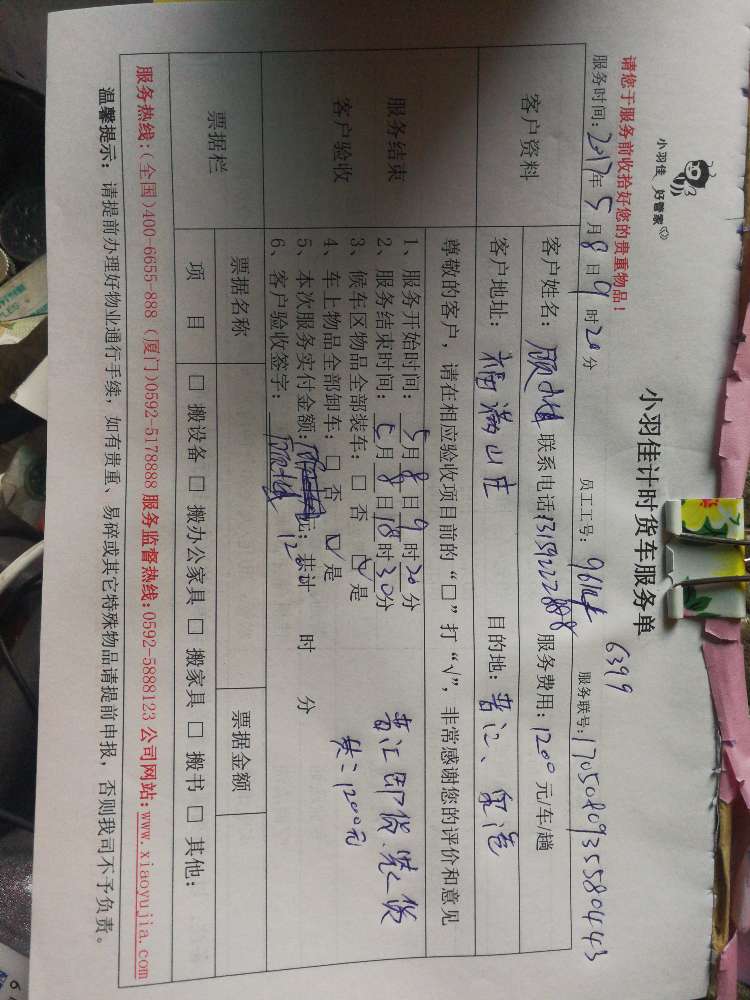 小羽佳 好管家
小羽佳计时货车服务单
6399
请您于服务前收拾好您的贵重物品！
员工工号：
服务联号：170508093558 0443
服务时间：2017年 5 月 8 日 9 时 20 分
客户资料
客户姓名： 联系电话：13159222888 服务费用：1200 元/车/趟
客户地址：福满山庄 目的地：晋江、安海
服务结束
客户验收
尊敬的客户，请在相应验收项目前的“□”打“√”，非常感谢您的评价和意见
1、服务开始时间：5月8日9时20分
2、服务结束时间：5月8日18时30分
3、候车区物品全部装车：□ 否 ☑ 是
4、车上物品全部卸车：□ 否 ☑ 是
5、本次服务实付金额： 元；共计 时 分
6、客户验收签字：
晋江卸货.装货
共：1200元
票据栏
票据名称
票据金额
项 目
□ 搬设备 □ 搬办公家具 □ 搬家具 □ 搬书 □ 其他：
服务热线：(全国)400-6655-888 (厦门)0592-5178888 服务监督热线：0592-5888123 公司网站：www.xiaoyujia.com
温馨提示：请提前办理好物业通行手续，如有贵重、易碎或其它特殊物品请提前申报，否则我司不予负责。